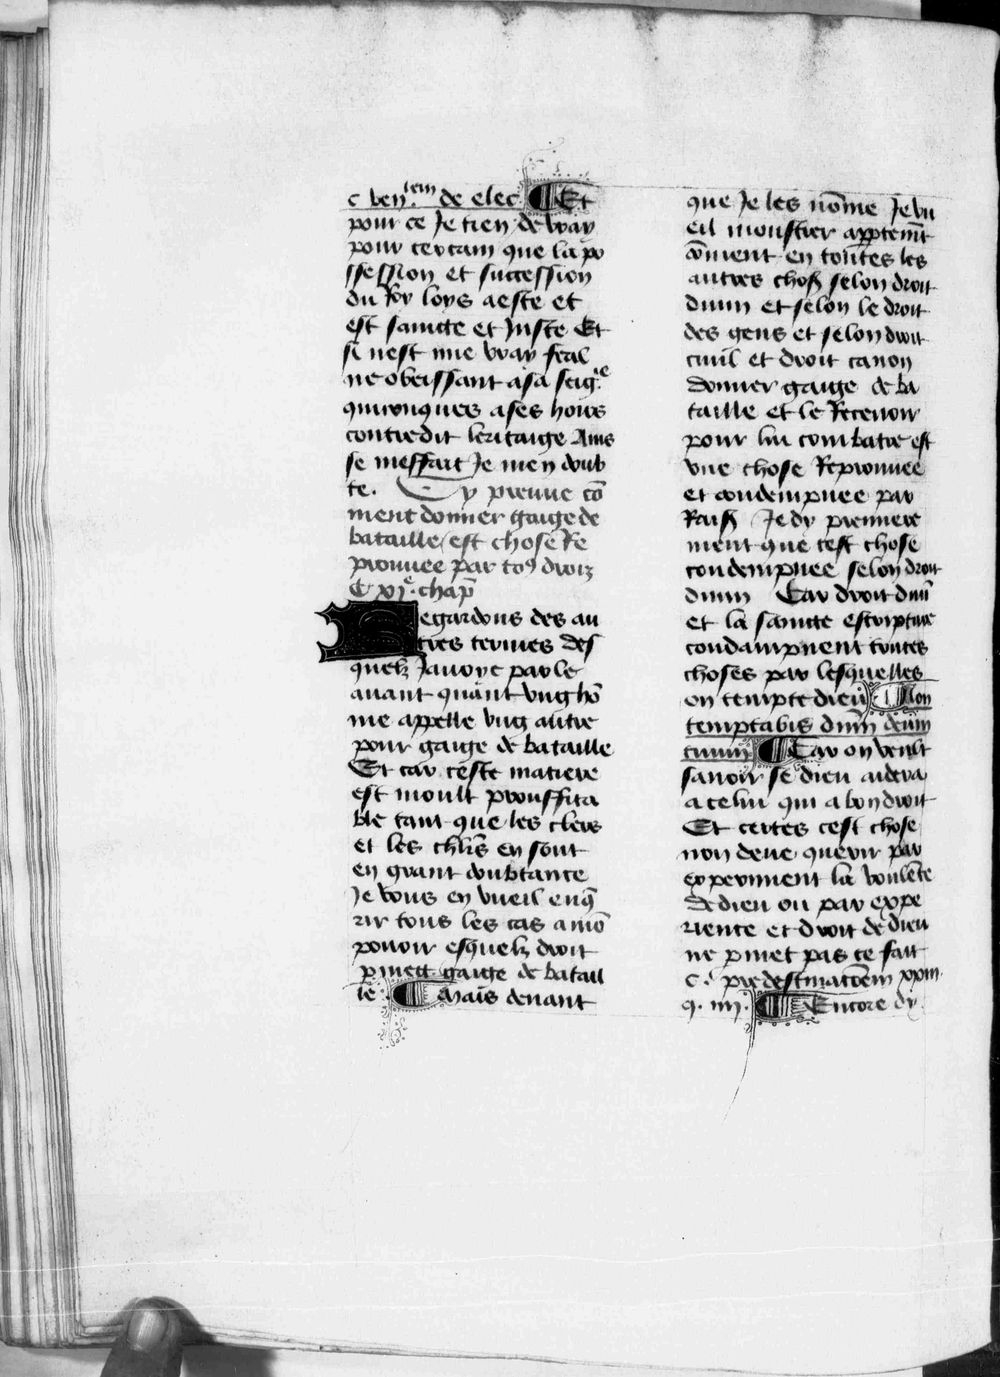 c ven.lem de elec ¶ Et
pour ce Je tien de vray
pour certain que la po
ssession et succession
du Roy loys aeste et
est saincte et Juste Et
si nest mie vray feal
ne obeissant asa seigr̄e
quiconques a ses hoirs
contredit leritaige Ains
se meffait Je men doub
te. Cy preuue cō
ment donner gaige de
bataille est chose Re
prouuee par to9 droiz
¶ xje. chap̄
Regardons des au
tres termes des
quelz Jauoye parle
auant quant vng hō
me appelle vng autre
pour gaige de bataille
Et car ceste matiere
est moult prouffita
ble tant que les clers
et les chlr̄s en sont
en grant doubtance
Je vous en vueil enq̄
rir tous les cas a mō
pouoir esquelz droit
pmect gaige de batail
le ¶ Mais deuant
que Je les nōme Je vu
eil monstrer apptemt̄
cōment en toutes les
autres chos̄ selon droit
diuin et selon le droit
des gens et selon droit
ciuil et droit canon
donner gaige de ba
taille et le Receuoir
pour lui combatre est
vne chose Reprouuee
et condempnee par
Rais̄ Je dy premiere
ment que cest chose
condempnee selon droit
diuin Car droit diuī
et la saincte escripture
condampnent toutes
choses par lesquelles
on tempte dieu ¶ Non
temptabis dn̄m deum
tuum ¶ Car on veult
sauoir se dieu aidera
a celui qui a bon droit
Et certes cest chose
non deue querir par
experiment la voulēte
de dieu ou par expe
rience et droit de dieu
ne pmet pas ce fait
c. predestinatōem xxiij.
q. iiij. ¶ Encore dy